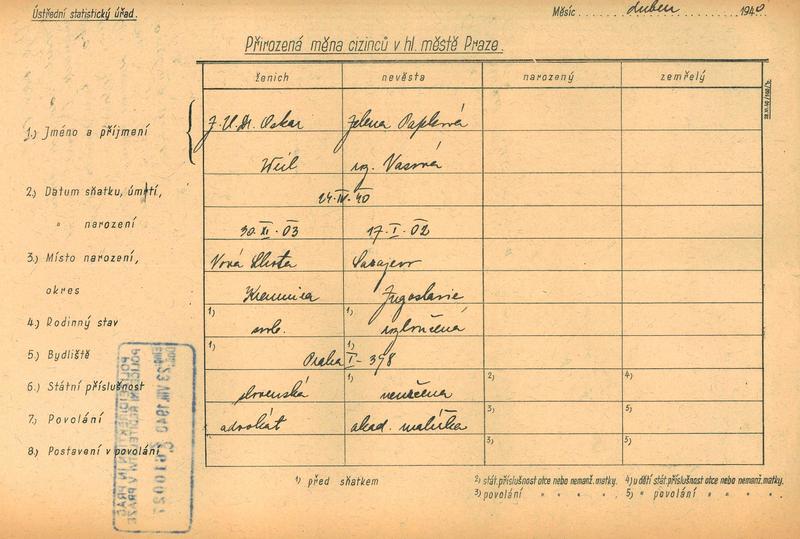 Ústřední statistický úřad.
Měsíc duben 1940
Přirozená měna cizinců v hl. městě Praze.
ženich nevěsta narozený zemřelý
1.) Jméno a příjmení
J.U.Dr. Oskar Jelena Papková
Weil roz. Vasová
2.) Datum sňatku, úmrtí,
24·IV·40
" narození 30·XI·03 17·I·02
3.) Místo narození, Nová Lhota Sarajevo
okres Kremnica Jugoslavie
4.) Rodinný stav 1) svob. 1) rozloučená
5.) Bydliště 1) 1) Praha I - 398
6.) Státní příslušnost slovenská 1) neurčena 2) 4)
7.) Povolání advokát akad. malířka 3) 5)
8.) Postavení v povolání 3) 5)
1) před sňatkem
2) stát. příslušnost otce nebo nemanž. matky. 4) u dětí stát. příslušnost otce nebo nemanž. matky.
3) povolání " " " " 5) " povolání " " "
POLIZEIDIREKTION IN PRAG
POLICEJNÍ ŘEDITELSTVÍ V PRAZE
23 VIII. 1940